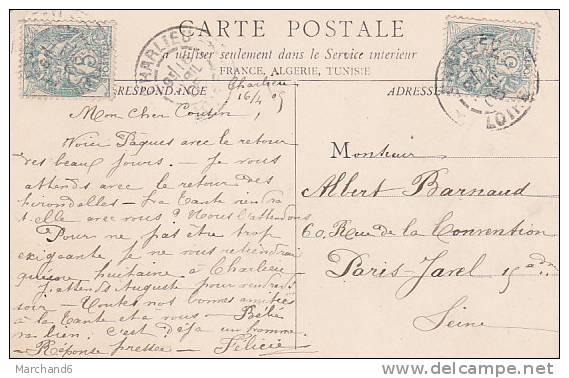 CARTE POSTALE
à utiliser seulement dans le Service intérieur
FRANCE, ALGERIE, TUNISIE
CORRESPONDANCE
ADRESSE
Charlieu
16/4 05
Mon cher Cousin,
Voici Pâques avec le retour
des beaux jours. – Je vous
attends avec le retour des
hirondelles – La tante viendra
t-elle avec vous ? Nous l'attendons
Pour ne pas être trop
exigeante, je ne vous retiendrai
qu'une huitaine à Charlieu
J'attends Auguste pour vendredi
soir – Toutes nos bonnes amitiés
à la tante et à vous – Bébé
va bien. c'est déjà un homme.
– Réponse pressée – Félicie
Monsieur
Albert Barnaud
60 Rue de la Convention
Paris-Javel 15e
Seine
CHARLIEU
LOIRE
Marchand6
http://www.delcampe.net